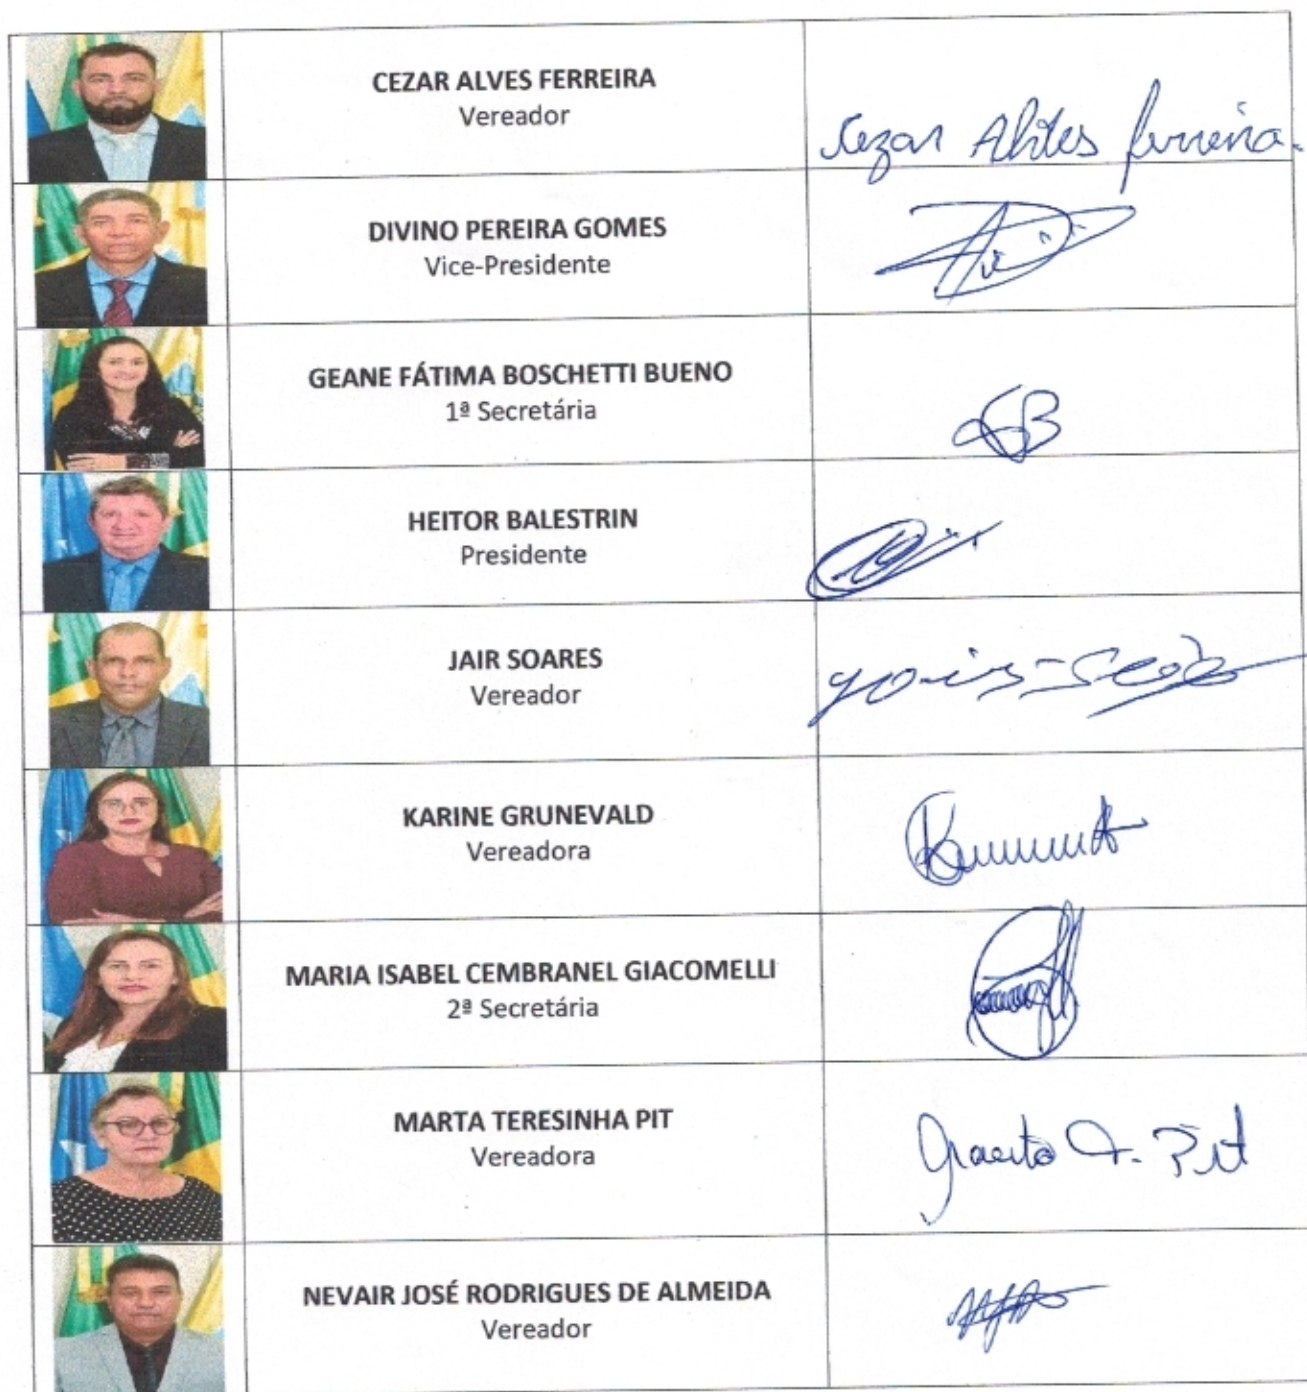 CEZAR ALVES FERREIRA
Vereador
Cezar Alves ferreira.
DIVINO PEREIRA GOMES
Vice-Presidente
GEANE FÁTIMA BOSCHETTI BUENO
1ª Secretária
GB
HEITOR BALESTRIN
Presidente
JAIR SOARES
Vereador
KARINE GRUNEVALD
Vereadora
MARIA ISABEL CEMBRANEL GIACOMELLI
2ª Secretária
MARTA TERESINHA PIT
Vereadora
Marta T. Pit
NEVAIR JOSÉ RODRIGUES DE ALMEIDA
Vereador